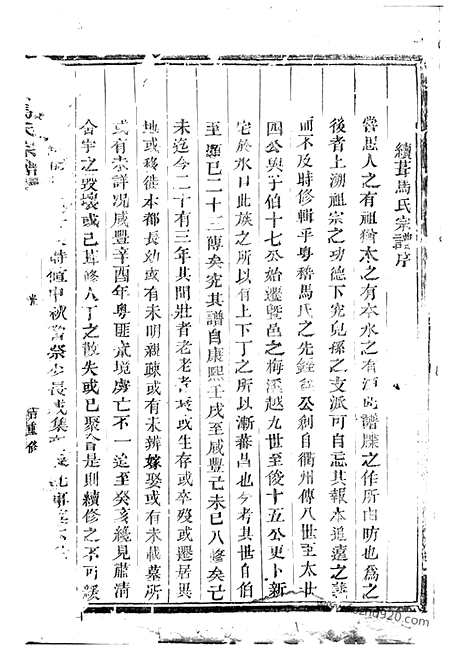 續葺馬氏宗譜序
嘗思人之有祖猶木之有本水之有源譜牒之作所由昉也爲之
後者上溯祖宗之功德下究兒孫之支派可自忘其報本追遠之善
而不及時修輯乎粵稽馬氏之先銓公創自衢州傳八世至太廿
四公與子伯十七公始遷暨邑之梅溪越九世至俊十五公更卜新
宅於水口此族之所以有上下丁之所以漸蕃昌也今考其世自伯
至灝已二十二傳矣究其譜自康熙壬戌至咸豐己未已八修矣己
未迄今二十有三年其間壯者老老者 或生存或卒殁或遷居異
地或移徙本都長幼或有未明親疎或有未辨嫁娶或有未載墓所
或有未詳况咸豐辛酉年粵匪 境虜亡不一迨至癸亥纔見肅清
舍宇之毀壞或已葺修人丁之散失或已聚會是則續修之不可緩
時値中秋嘗祭少長咸集
馬氏宗譜
序
重修
eynod920.com